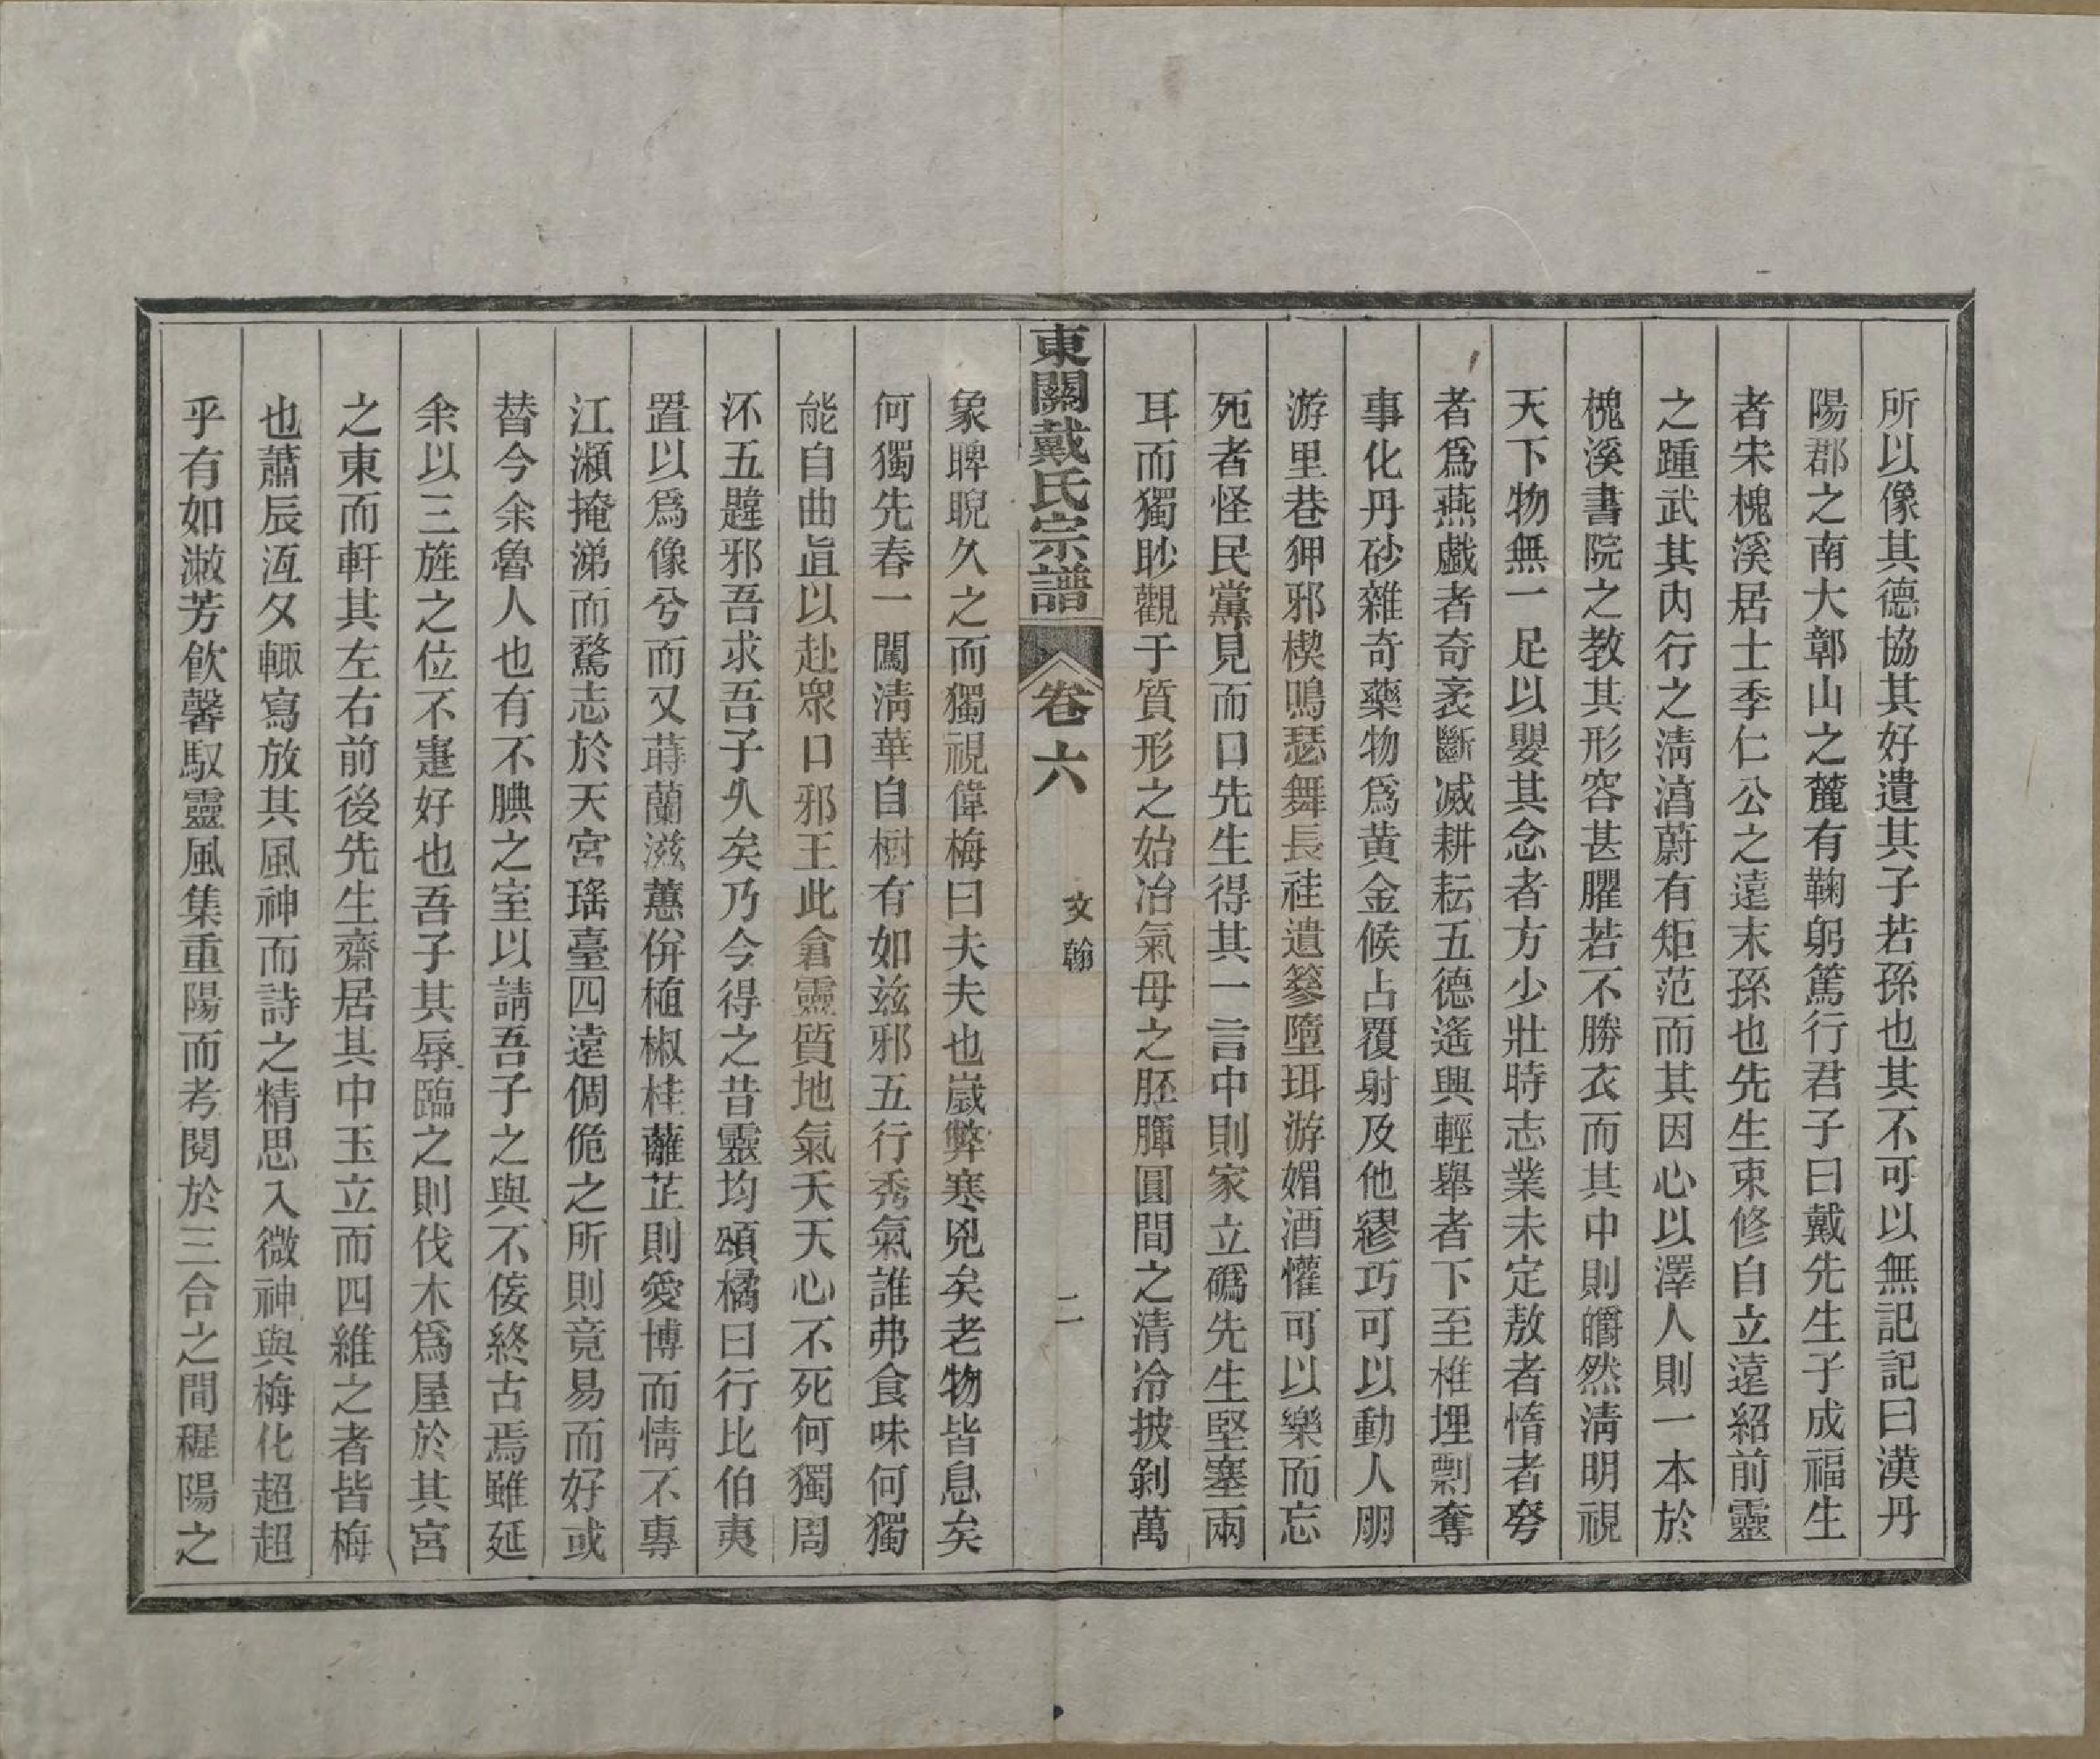 所以像其德協其好遺其子若孫也其不可以無記記曰漢丹
陽郡之南大鄣山之麓有鞠躬篤行君子曰戴先生子成福生
者宋槐溪居士季仁公之遠末孫也先生束修自立遠紹前靈
之踵武其內行之淸濇蔚有矩范而其因心以澤人則一本於
槐溪書院之教其形容甚臞若不勝衣而其中則皭然淸明視
天下物無一足以嬰其念者方少壯時志業未定敖者惰者髮
者爲燕戲者奇袤斷減耕耘五德遙興輕舉者下至椎埋剽奪
事化丹砂雜奇藥物爲黃金候占覆射及他繆巧可以動人朋
游里巷狎邪楔鳴瑟舞長袿遺篸墮珥游媚酒懽可以樂而忘
死者怪民黨見而口先生得其一言中則家立礪先生堅塞兩
耳而獨眇觀于質形之始冶氣母之胚腪圓間之清冷披剝萬
東關戴氏宗譜 卷六 文翰 二
象睥睨久之而獨視偉梅曰夫夫也歲弊寒兇矣老物皆息矣
何獨先春一闖淸華自樹有如玆邪五行秀氣誰弗食味何獨
能自曲直以赴衆口邪王此倉靈質地氣夭天心不死何獨周
汳五韙邪吾求吾子久矣乃今得之昔靈均頌橘曰行比伯夷
置以爲像兮而又蒔蘭滋蕙併植椒桂蘺芷則愛博而情不專
江瀕掩涕而騖志於天宮瑤臺四遠倜佹之所則竟易而好或
替今余魯人也有不腆之室以請吾子之與不倿終古焉雖延
余以三旌之位不疌好也吾子其辱臨之則伐木爲屋於其宮
之東而軒其左右前後先生齋居其中玉立而四維之者皆梅
也蕭辰沍夂輙寫放其風神而詩之精思入微神與梅化超超
乎有如漱芳飮馨馭靈風集重陽而考閱於三合之間穉陽之